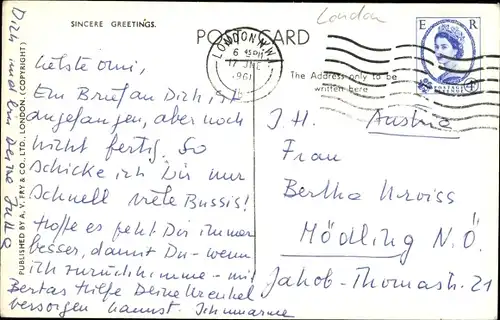 SINCERE GREETINGS.
POST CARD
London
E R
POSTAGE
LONDON N.W.1
6 45 PM
17 JNE
1961
The Address only to be
written here
Liebste Omi,
Ein Brief an Dich ist
angefangen, aber noch
nicht fertig. So
schicke ich Dir nur
schnell viele Bussis!
Hoffe es geht Dir immer
besser, damit Du - wenn
ich zurückkomme - mit
Bertas Hilfe Deine
versorgen kannst. Ich umarme
Dich und bin Deine
Austria
Frau
Bertha
Mödling N.Ö.
Jakob-Thomastr. 21
PUBLISHED BY A. V. FRY & CO., LTD., LONDON. (COPYRIGHT)